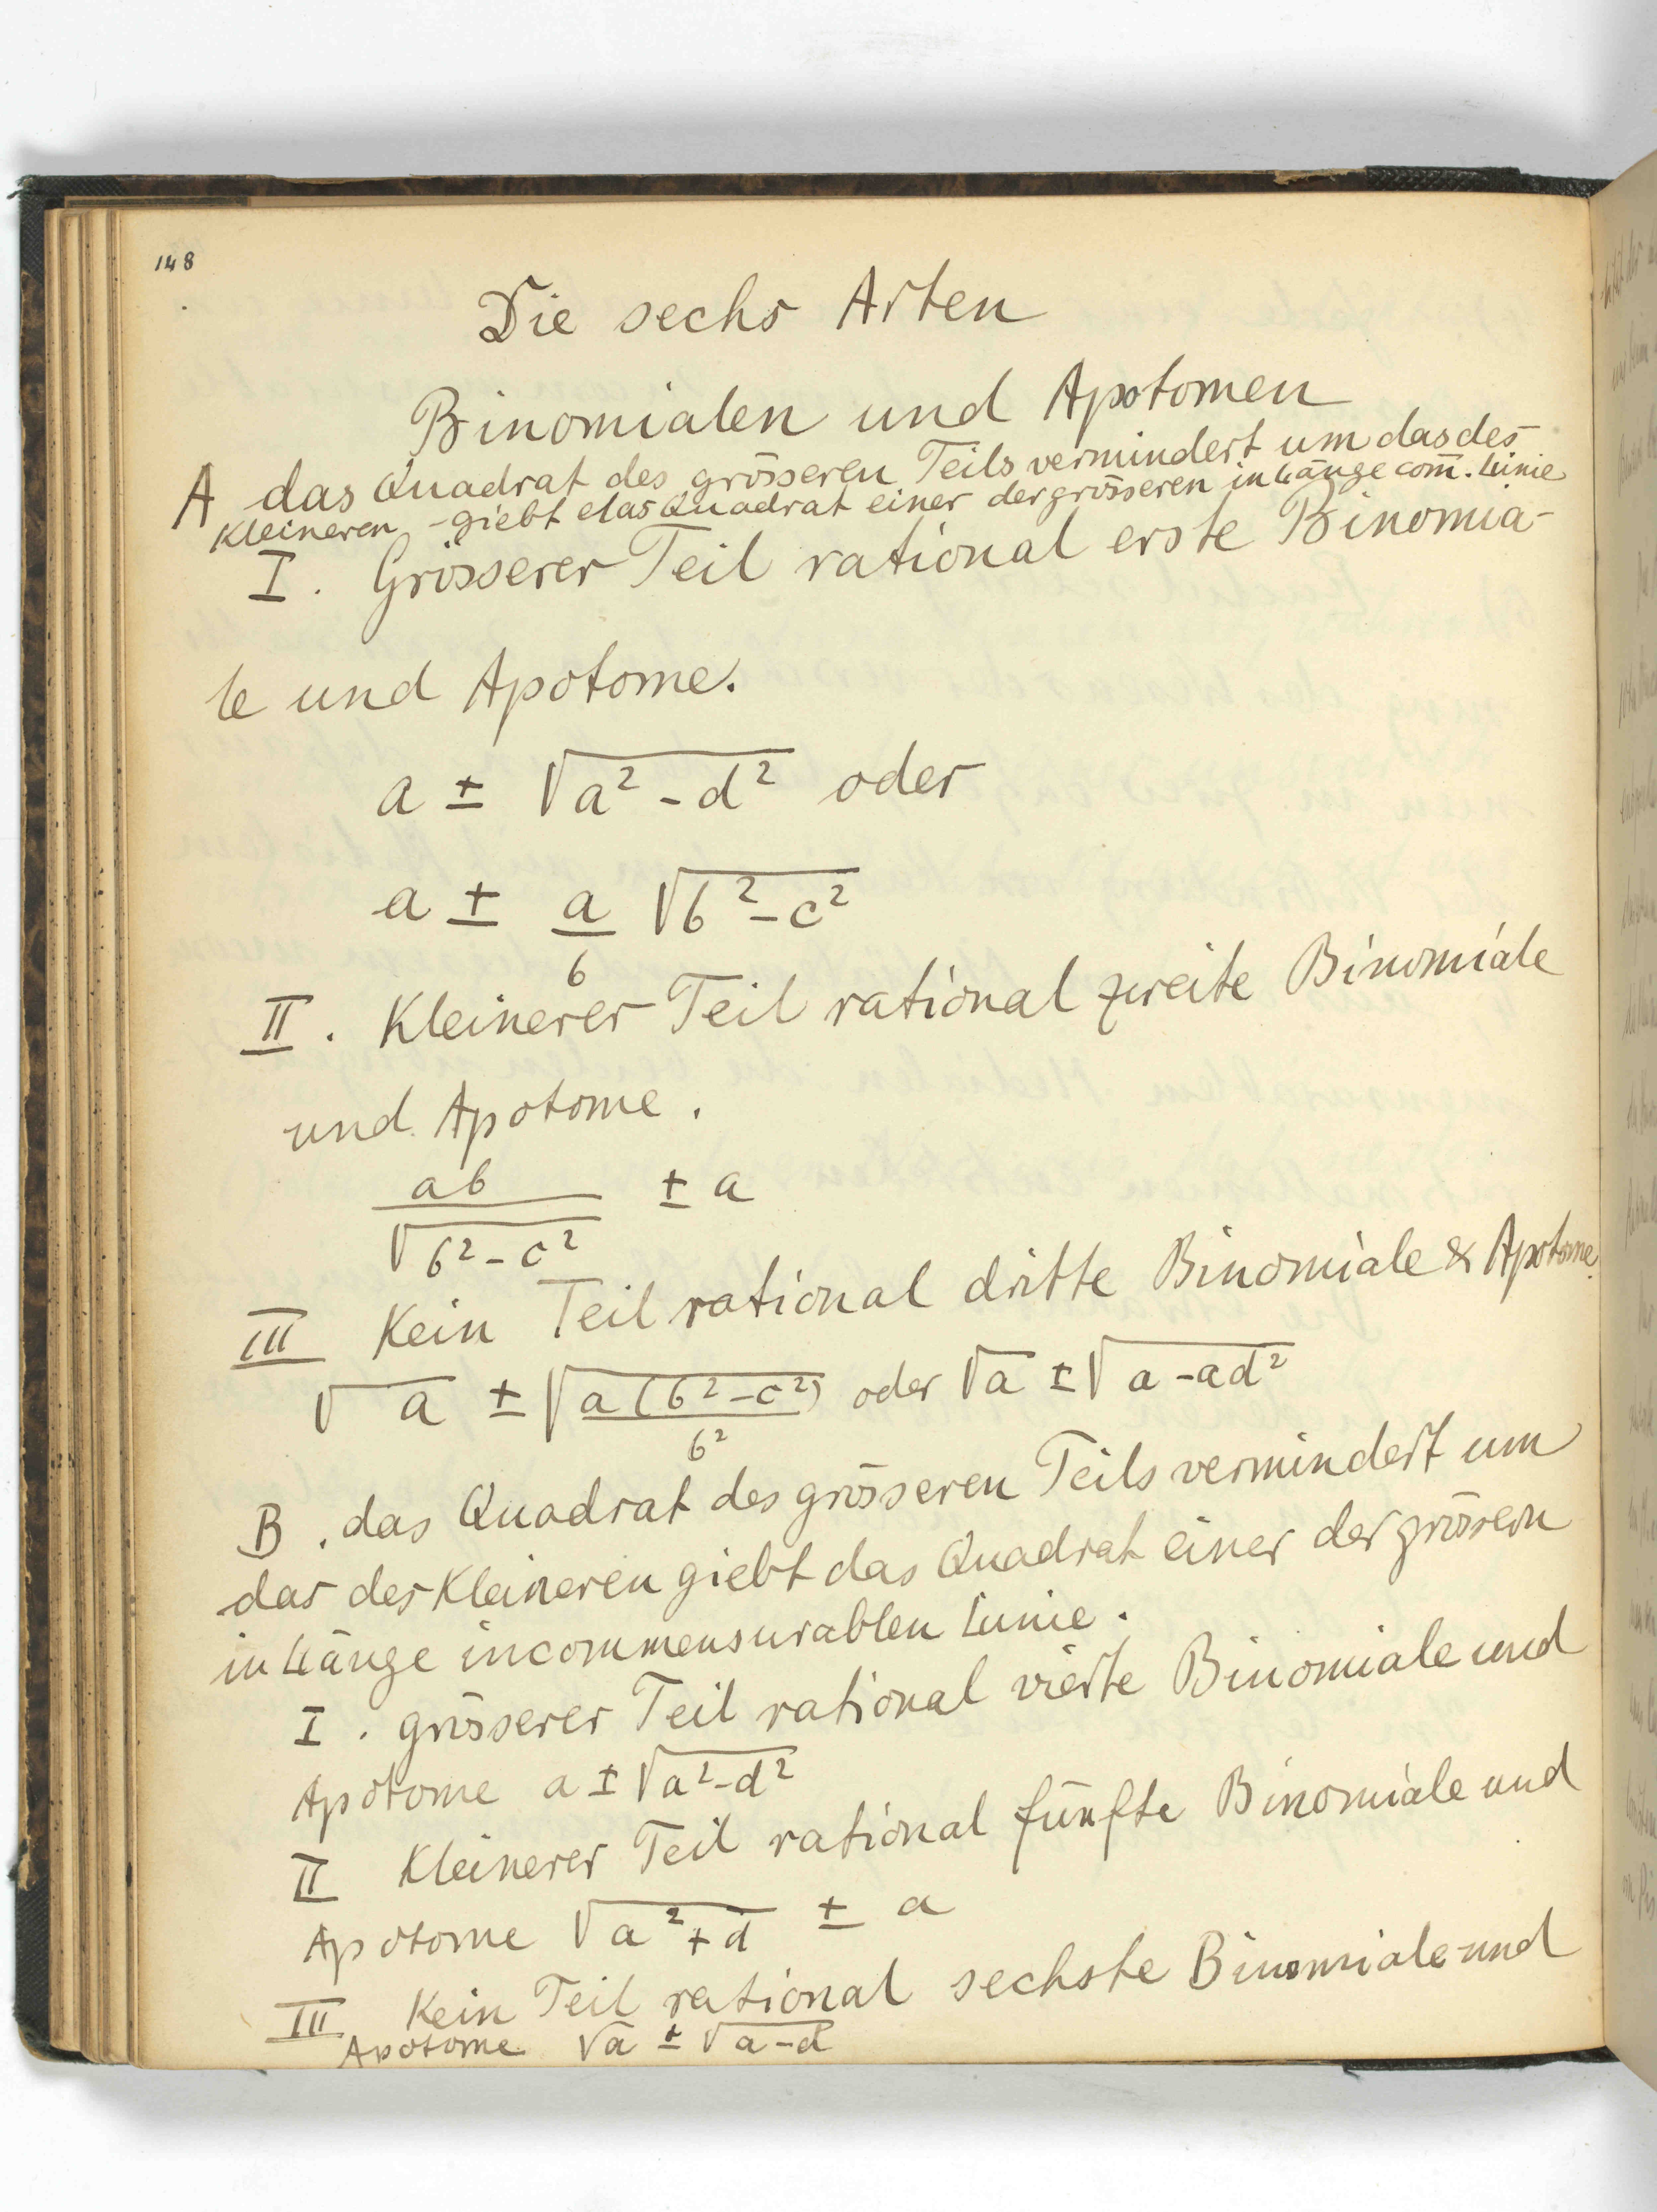 148
Die sechs Arten
Binomialen und Apotomen
A das Quadrat des grösseren Teils vermindert um das des
kleineren - giebt das Quadrat einer der grösseren in Länge com̄. Linie
I. Grösserer Teil rational erste Binomia-
le und Apotome.
a ± √(a² - d²) oder
a ± a/b √(b² - c²)
II. Kleinerer Teil rational zweite Binomiale
und Apotome.
ab/√(b² - c²) ± a
III Kein Teil rational dritte Binomiale & Apotome.
√a ± √(a(b² - c²)/b²) oder √a ± √(a - ad²)
B. das Quadrat des grösseren Teils vermindert um
das des Kleineren giebt das Quadrat einer der grössern
in Länge incommensurablen Linie.
I. grösserer Teil rational vierte Binomiale und
Apotome a ± √(a² - d²)
II Kleinerer Teil rational fünfte Binomiale und
Apotome √(a² + d) ± a
III Kein Teil rational sechste Binomiale und
Apotome √a ± √(a - d)